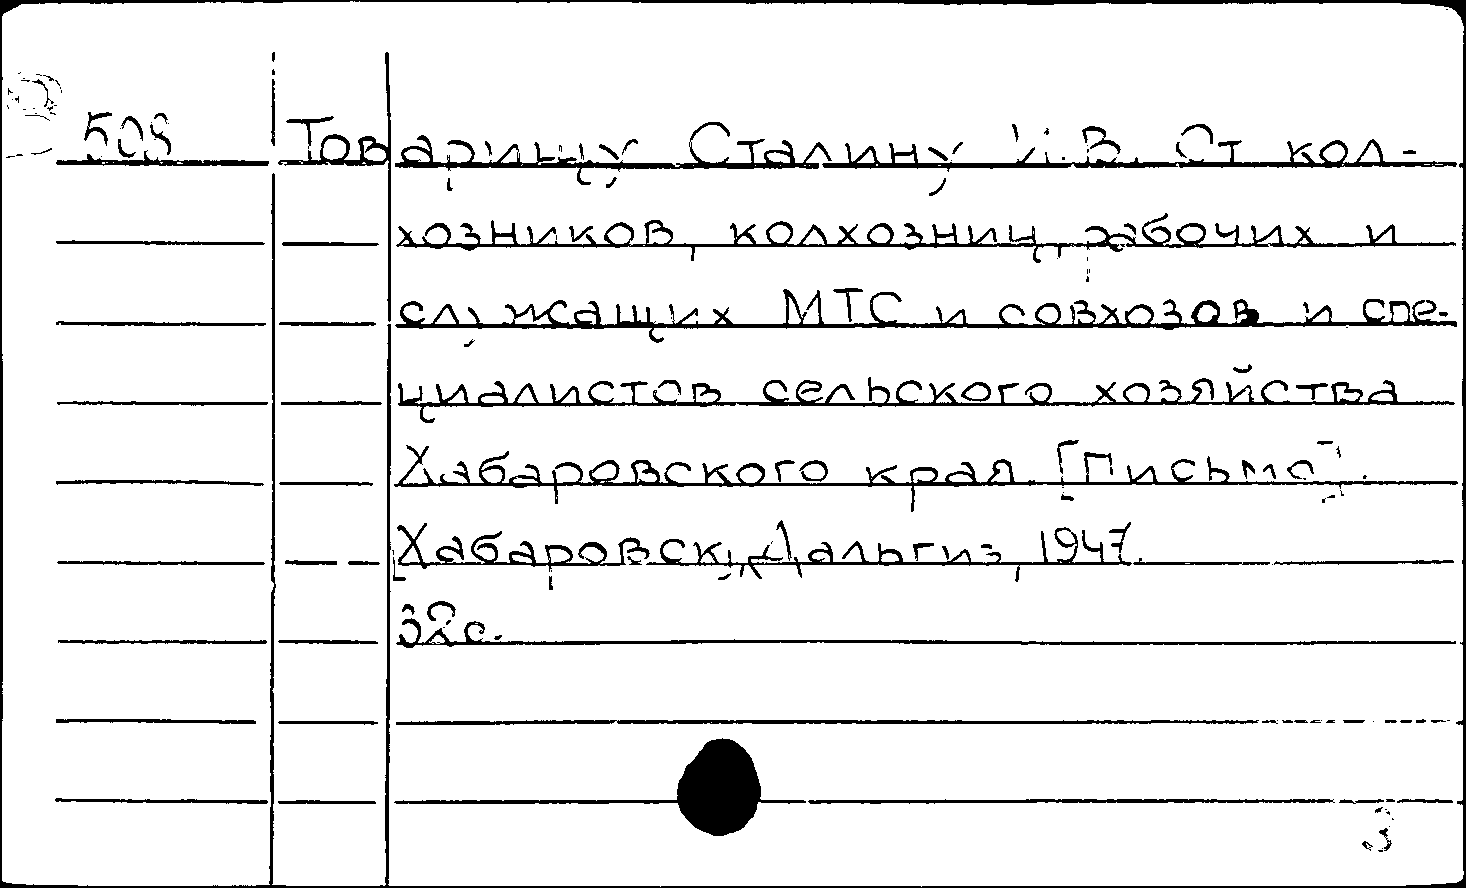 508 Товарищу Сталину И.В. От кол-
хозников, колхозниц, рабочих и
служащих МТС и совхозов и спе-
циалистов сельского хозяйства
Хабаровского края. [Письмо].
[Хабаровск], Дальгиз, 1947.
32с.
3